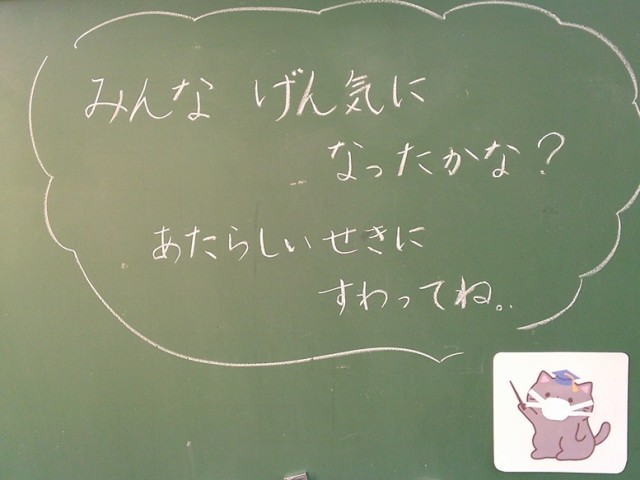 みんな げん気に
なったかな?
あたらしいせきに
すわってね。